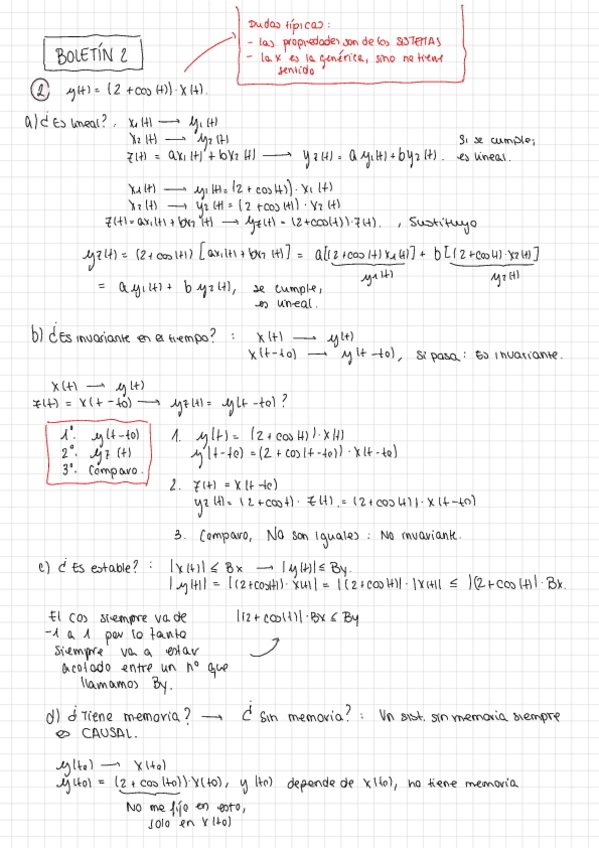 Dudas típicas:
- las propiedades son de los SISTEMAS
- la x es la genérica, sino no tiene
sentido
BOLETÍN 2
2 y(t) = (2 + cos(t)) · x(t).
a) ¿Es lineal? . x₁(t) → y₁(t)
x₂(t) → y₂(t)
z(t) = ax₁(t) + bx₂(t) → yz(t) = a y₁(t) + by₂(t).
Si se cumple;
es lineal.
x₁(t) → y₁(t) = (2 + cos(t)) · x₁(t)
x₂(t) → y₂(t) = (2 + cos(t)) · x₂(t)
z(t) = ax₁(t) + bx₂(t) → yz(t) = (2+cos(t)) · z(t). , Sustituyo
yz(t) = (2 + cos(t)) [ax₁(t) + bx₂(t)] = a[(2 + cos(t) x₁(t)] + b[(2 + cos(t) · x₂(t)]
y₁(t) y₂(t)
= a y₁(t) + b y₂(t), se cumple,
es lineal.
b) ¿Es invariante en el tiempo? : x(t) → y(t)
x(t-to) → y(t-to), si pasa: Es invariante.
x(t) → y(t)
z(t) = x(t-to) → yz(t) = y(t-to)?
1º. y(t-to)
2º. yz(t)
3º. Comparo.
1. y(t) = (2 + cos(t)) · x(t)
y(t-to) = (2 + cos(t-to)) · x(t-to)
2. z(t) = x(t-to)
yz(t) = (2 + cos t) · z(t) = (2 + cos(t)) · x(t-to)
3. Comparo, No son iguales: No invariante.
c) ¿Es estable? : |x(t)| ≤ Bx → |y(t)| ≤ By.
|y(t)| = |(2+cos(t)) · x(t)| = |(2 + cos(t)| · |x(t)| ≤ |(2 + cos(t)| · Bx.
El cos siempre va de
-1 a 1 por lo tanto
siempre va a estar
acotado entre un nº que
llamamos By.
|(2 + cos(t)| · Bx ≤ By
d) ¿Tiene memoria? → ¿Sin memoria? : Un sist. sin memoria siempre
es CAUSAL.
y(to) → x(to)
y(to) = (2 + cos(to)) · x(to), y(to) depende de x(to), no tiene memoria
No me fijo en esto,
solo en x(to)